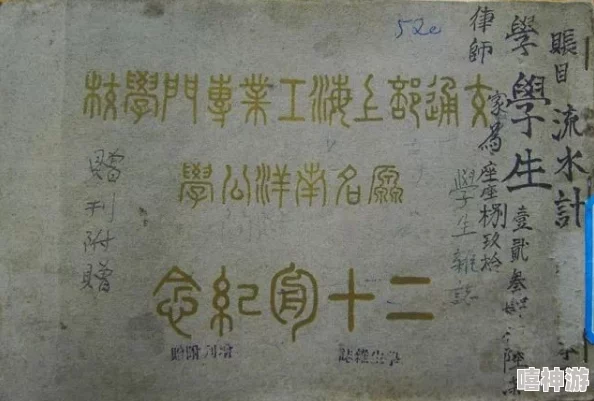 52c
賬目 流水計
學學生
律師
壹貳叁
座座捌玖拾
學生雜誌
交通部上海工業專門學校
原名南洋公學
二十周紀念
贈刊附贈
學生雜誌
增刊附贈
嘻神游